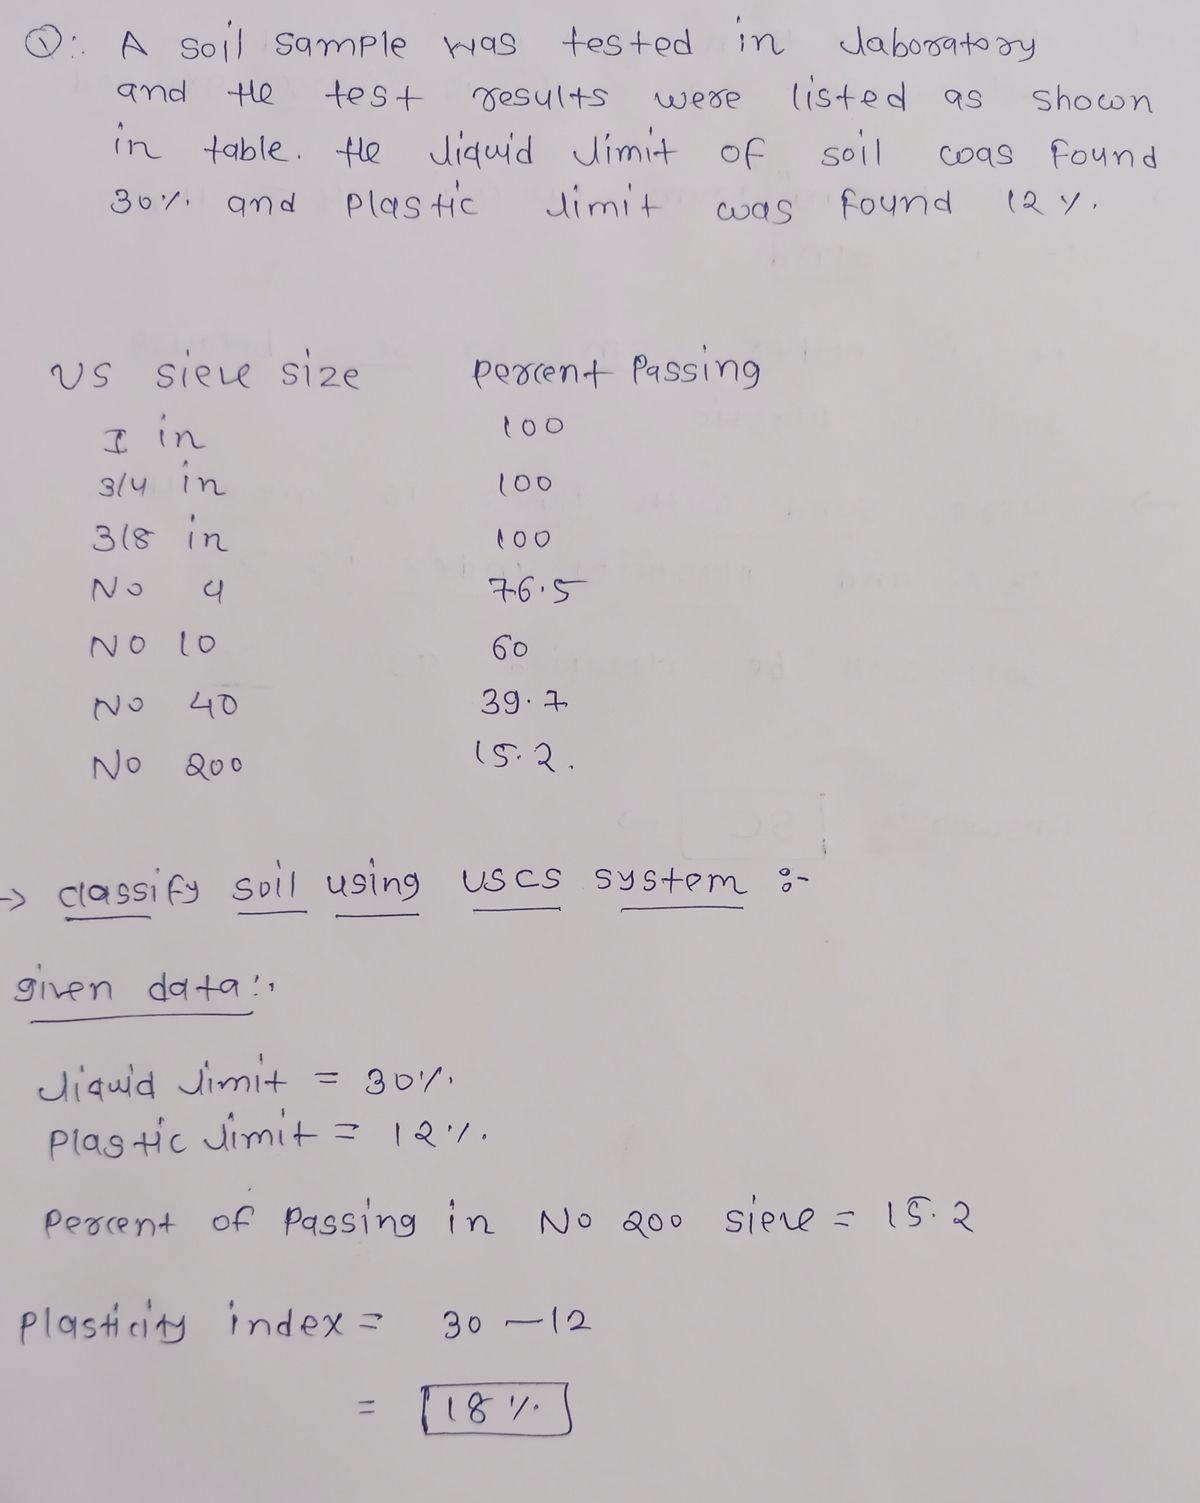 Q:. A soil sample was tested in laboratory
and the test results were listed as shown
in table. the liquid limit of soil was found
30%. and plastic limit was found 12%.
US sieve size percent passing
1 in 100
3/4 in 100
3/8 in 100
No 4 76.5
NO 10 60
No 40 39.7
No 200 15.2.
→ classify soil using USCS system :-
given data:.
liquid limit = 30%.
plastic limit = 12%.
percent of passing in No 200 sieve = 15.2
plasticity index = 30 - 12
= 18%.